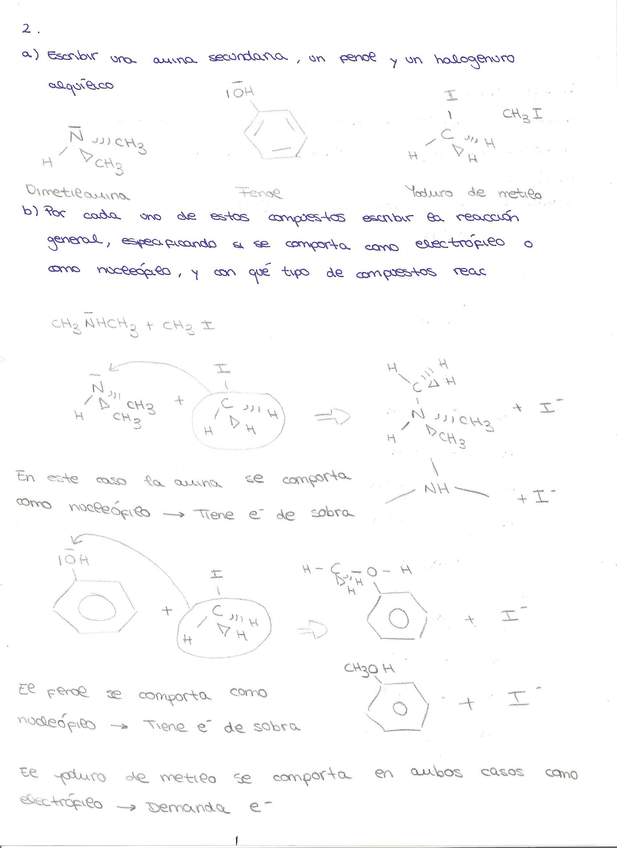 2.
a) Escribir una amina secundaria, un fenol y un halogenuro
alquílico
I
IOH
CH3 I
N
C
H
CH3
CH3
H
H
H
Dimetilamina
Fenol
Yoduro de metilo
b) Por cada uno de estos compuestos escribir la reacción
general, especificando si se comporta como electrófilo o
como nucleófilo, y con qué tipo de compuestos reac
CH3 NHCH3 + CH3 I
I
H
H
C
H
N
CH3
CH3
H
+
C
H
H
H
⇒
N
CH3
CH3
H
+ I-
En este caso la amina se comporta
como nucleófilo → Tiene e- de sobra
NH
+ I-
IOH
+
I
C
H
H
H
⇒
H - C - O - H
H
H
+ I-
CH3OH
+ I-
El fenol se comporta como
nucleófilo → Tiene e- de sobra
El yoduro de metilo se comporta en ambos casos como
electrófilo → Demanda e-
1